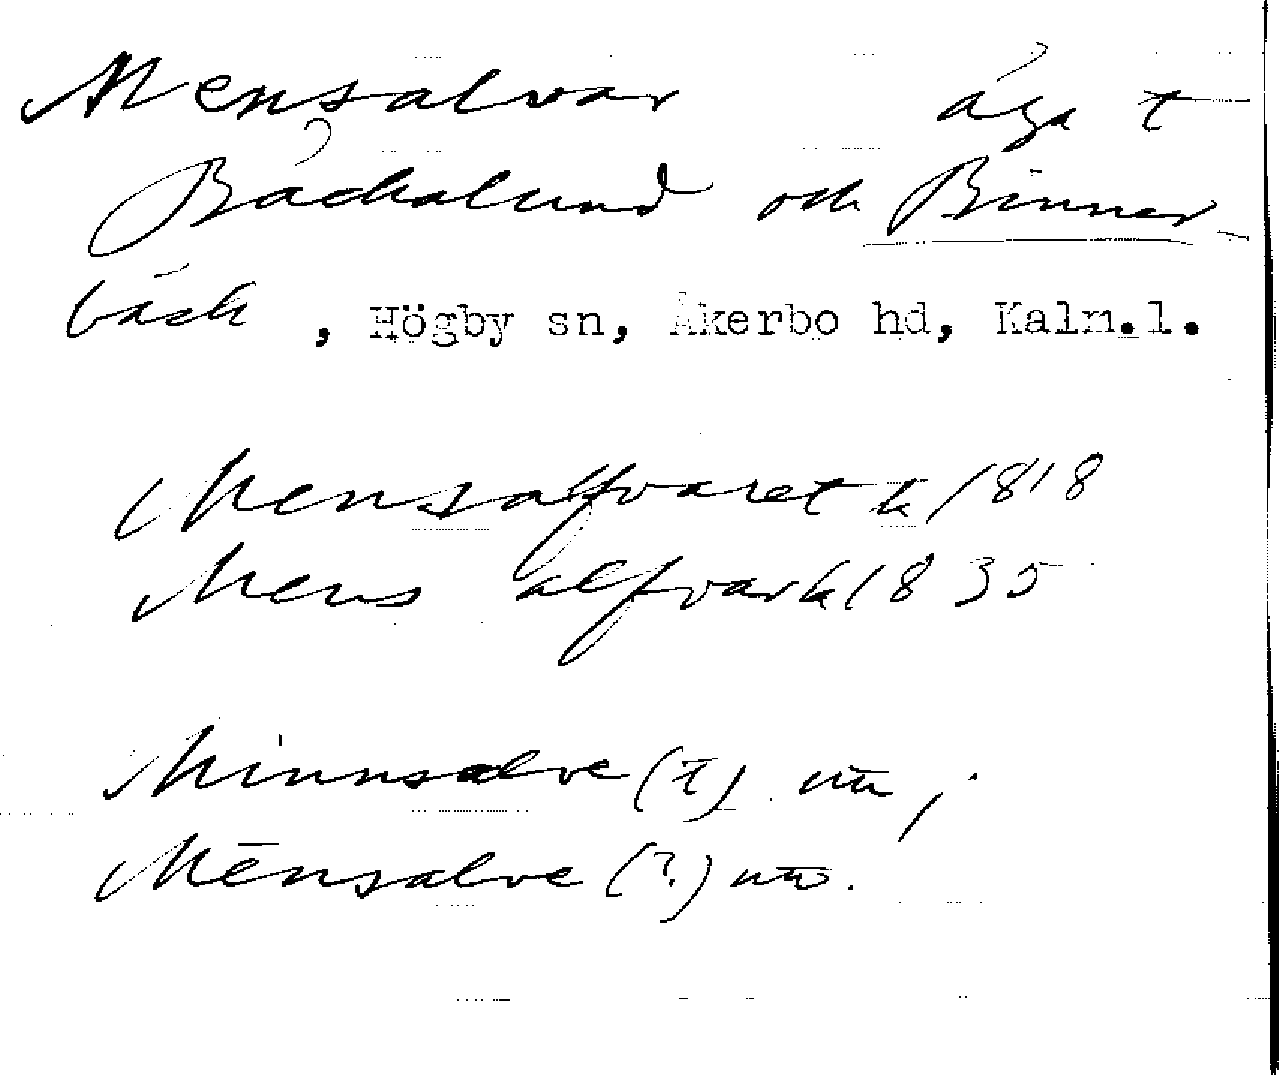 Mensalvar äga t
Backalund och Binner
bäck, Högby sn, Åkerbo hd, Kalm.l.
Mensalfvaret k 1818
Mens alfvar k 1835
Minnsalve (t) utt,
Mēnsalve (?) utt.